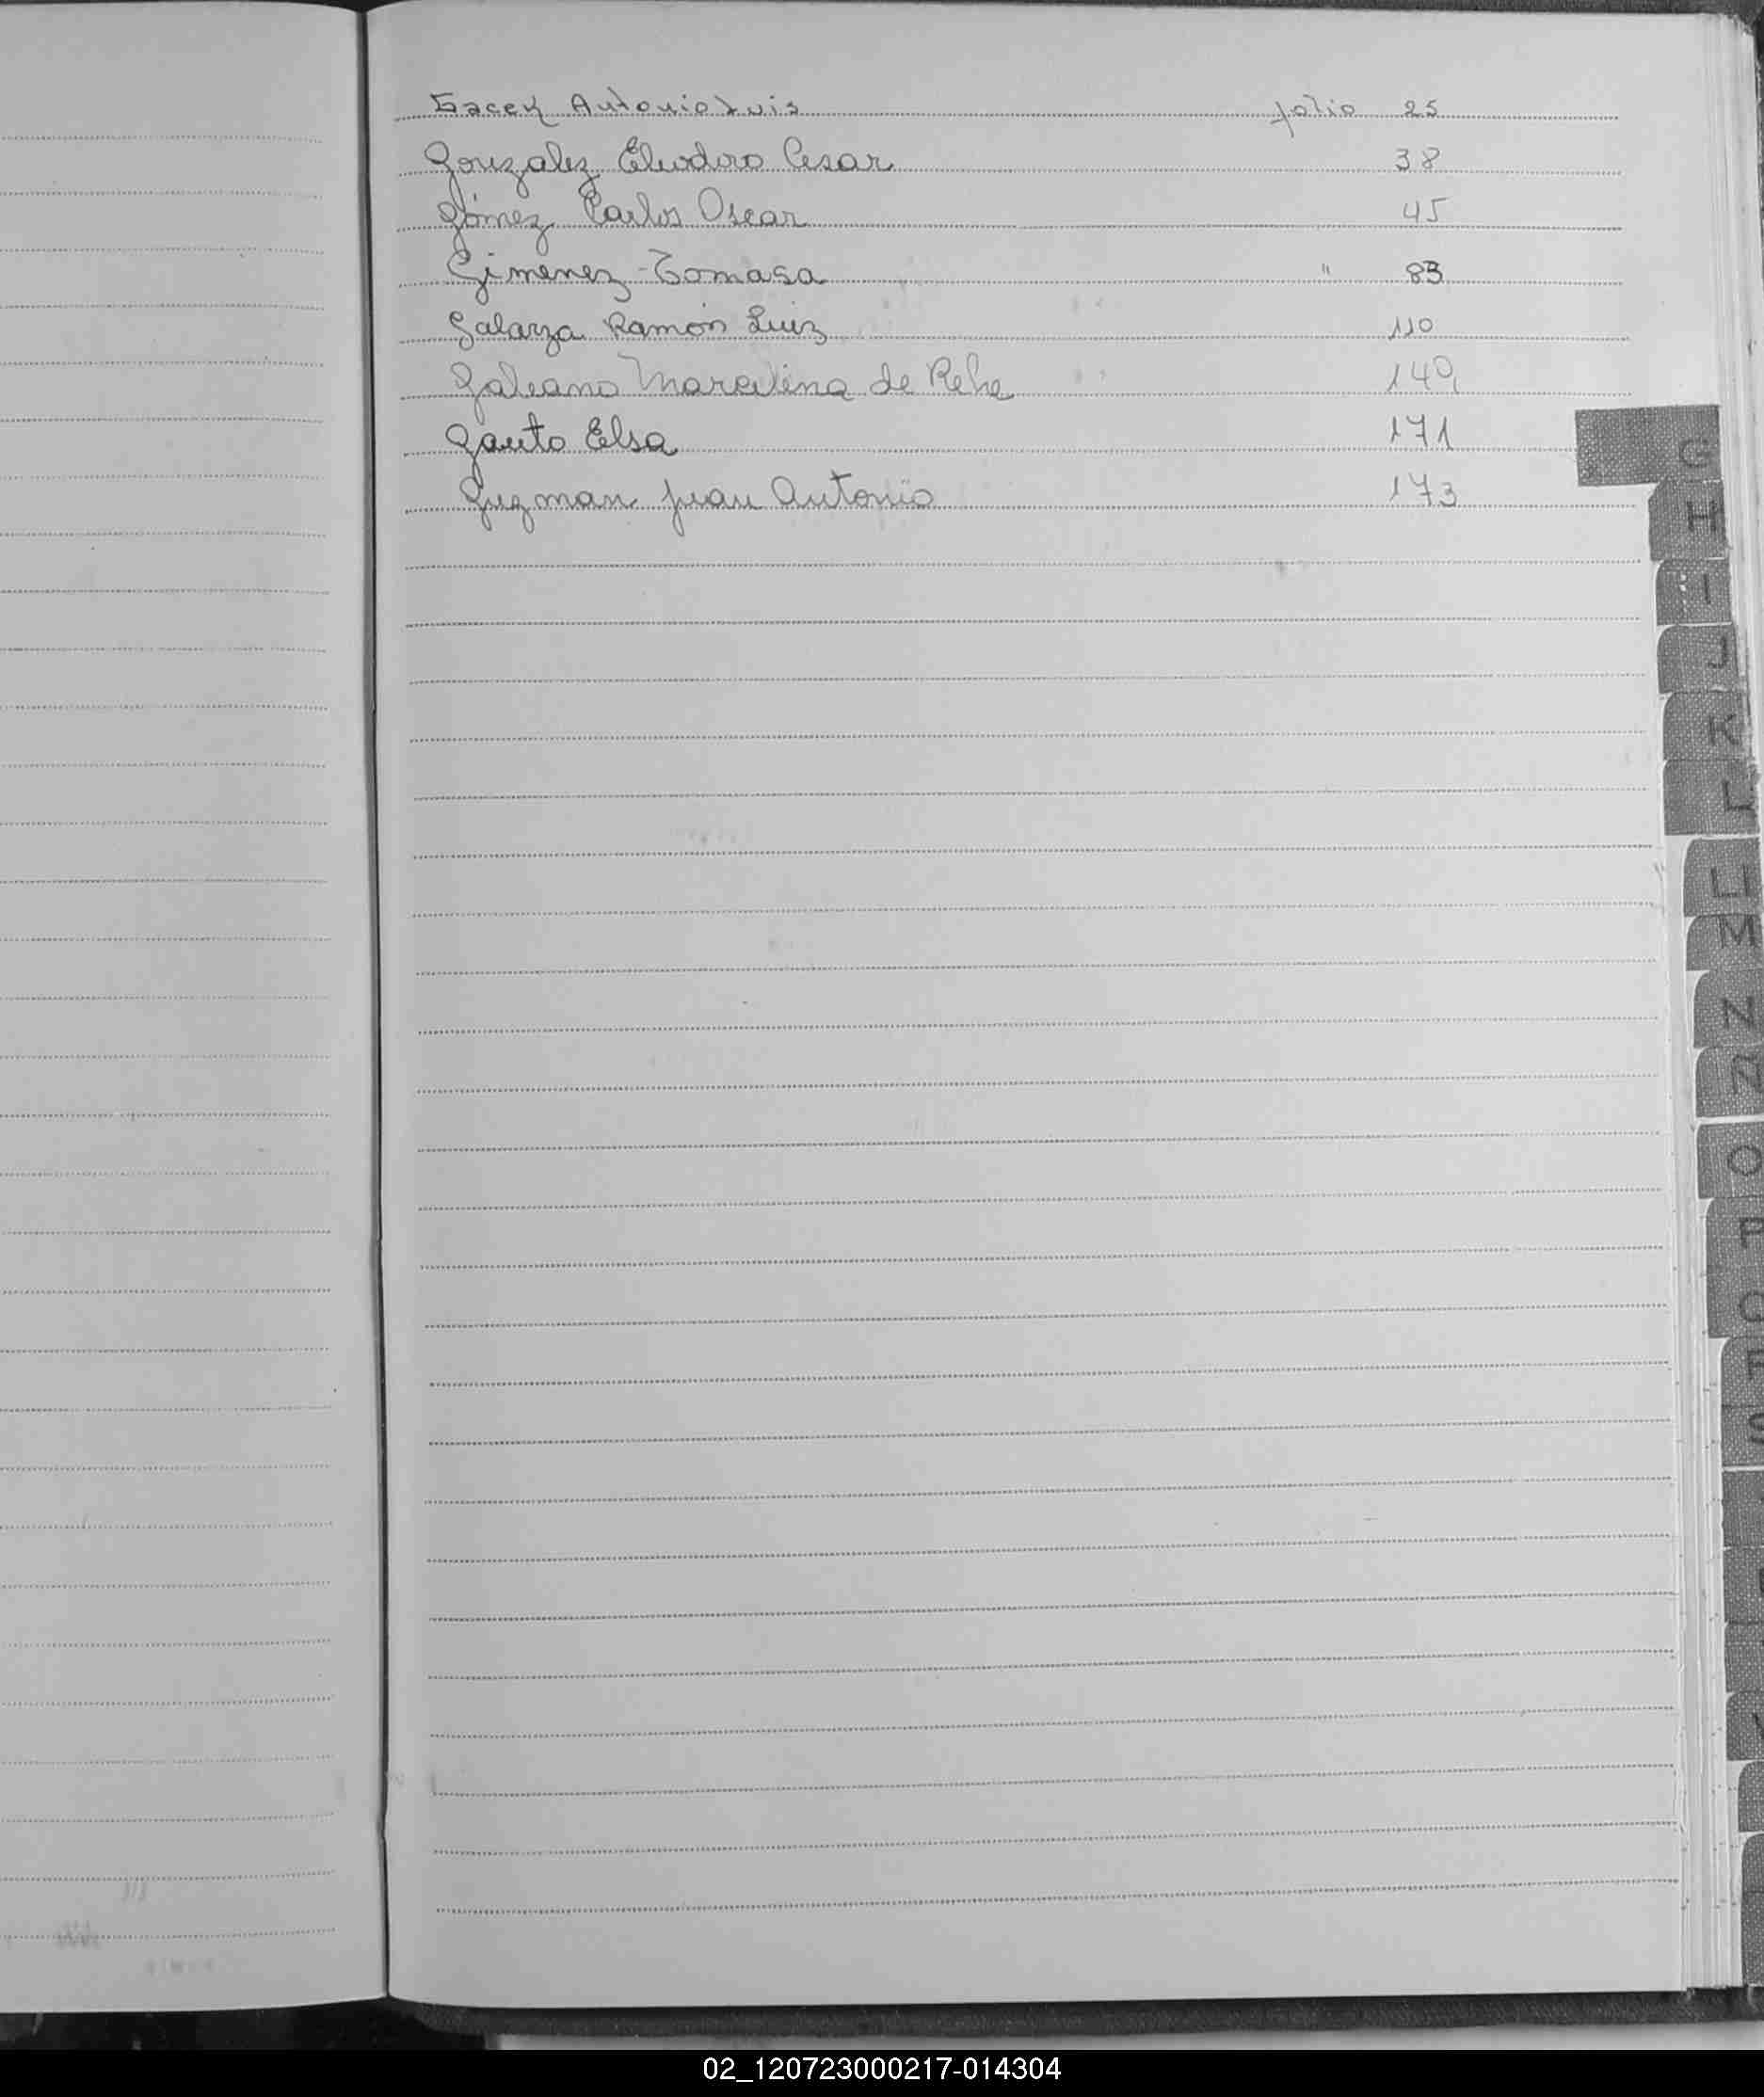 Gacek Antonio Luis folio 25
Gonzalez Eliodoro Cesar 38
Gómez Carlos Oscar 45
Gimenez - Tomasa " 83
Galarza Ramón Luiz 110
Galeano Marcelina de Rehe 140
Gauto Elsa 171
Guzman Juan Antonio 173
G
H
I
J
K
L
LL
M
N
Ñ
O
P
Q
R
S
02_120723000217-014304